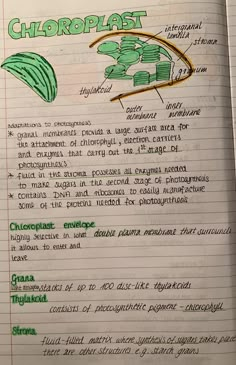 CHLOROPLAST
intergranal
lamella
stroma
granum
thylakoid
outer
membrane
inner
membrane
Adaptations to photosynthesis
* granal membranes provide a large surface area for
the attachment of chlorophyll, electron carriers
and enzymes that carry out the 1st stage of
photosynthesis
* fluid in the stroma possesses all enzymes needed
to make sugars in the second stage of photosynthesis
* contains DNA and ribosomes to easily manufacture
some of the proteins needed for photosynthesis
Chloroplast envelope
double plasma membrane that surrounds
highly selective in what
it allows to enter and
leave
Grana
stacks of up to 100 disc-like thylakoids
Thylakoid
consists of photosynthetic pigment - chlorophyll
Stroma
fluid-filled matrix where synthesis of sugars takes place
there are other structures e.g. starch grains